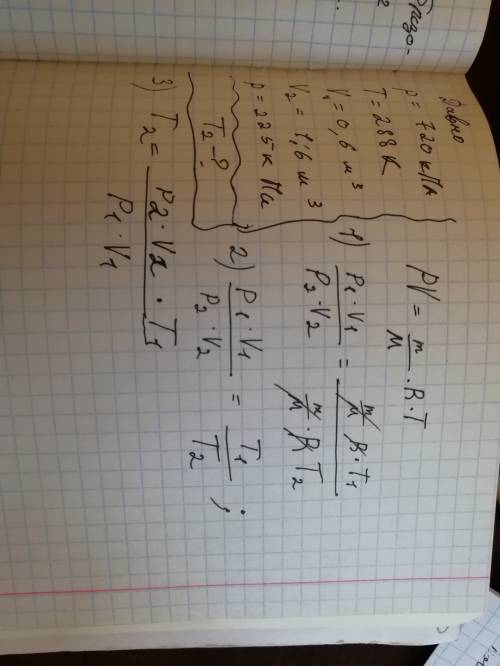 Давно
P = 720 кПа
T = 288 К
V₁ = 0,6 м³
V₂ = 1,6 м³
p = 225 к Па
T₂ - ?
PV = m/M · R · T
1) P₁ · V₁ / P₂ · V₂ = m/M R · T₁ / m/M · R T₂
2) P₁ · V₁ / P₂ · V₂ = T₁ / T₂ ;
3) T₂ = P2 · V2 · T₁ / P₁ · V₁